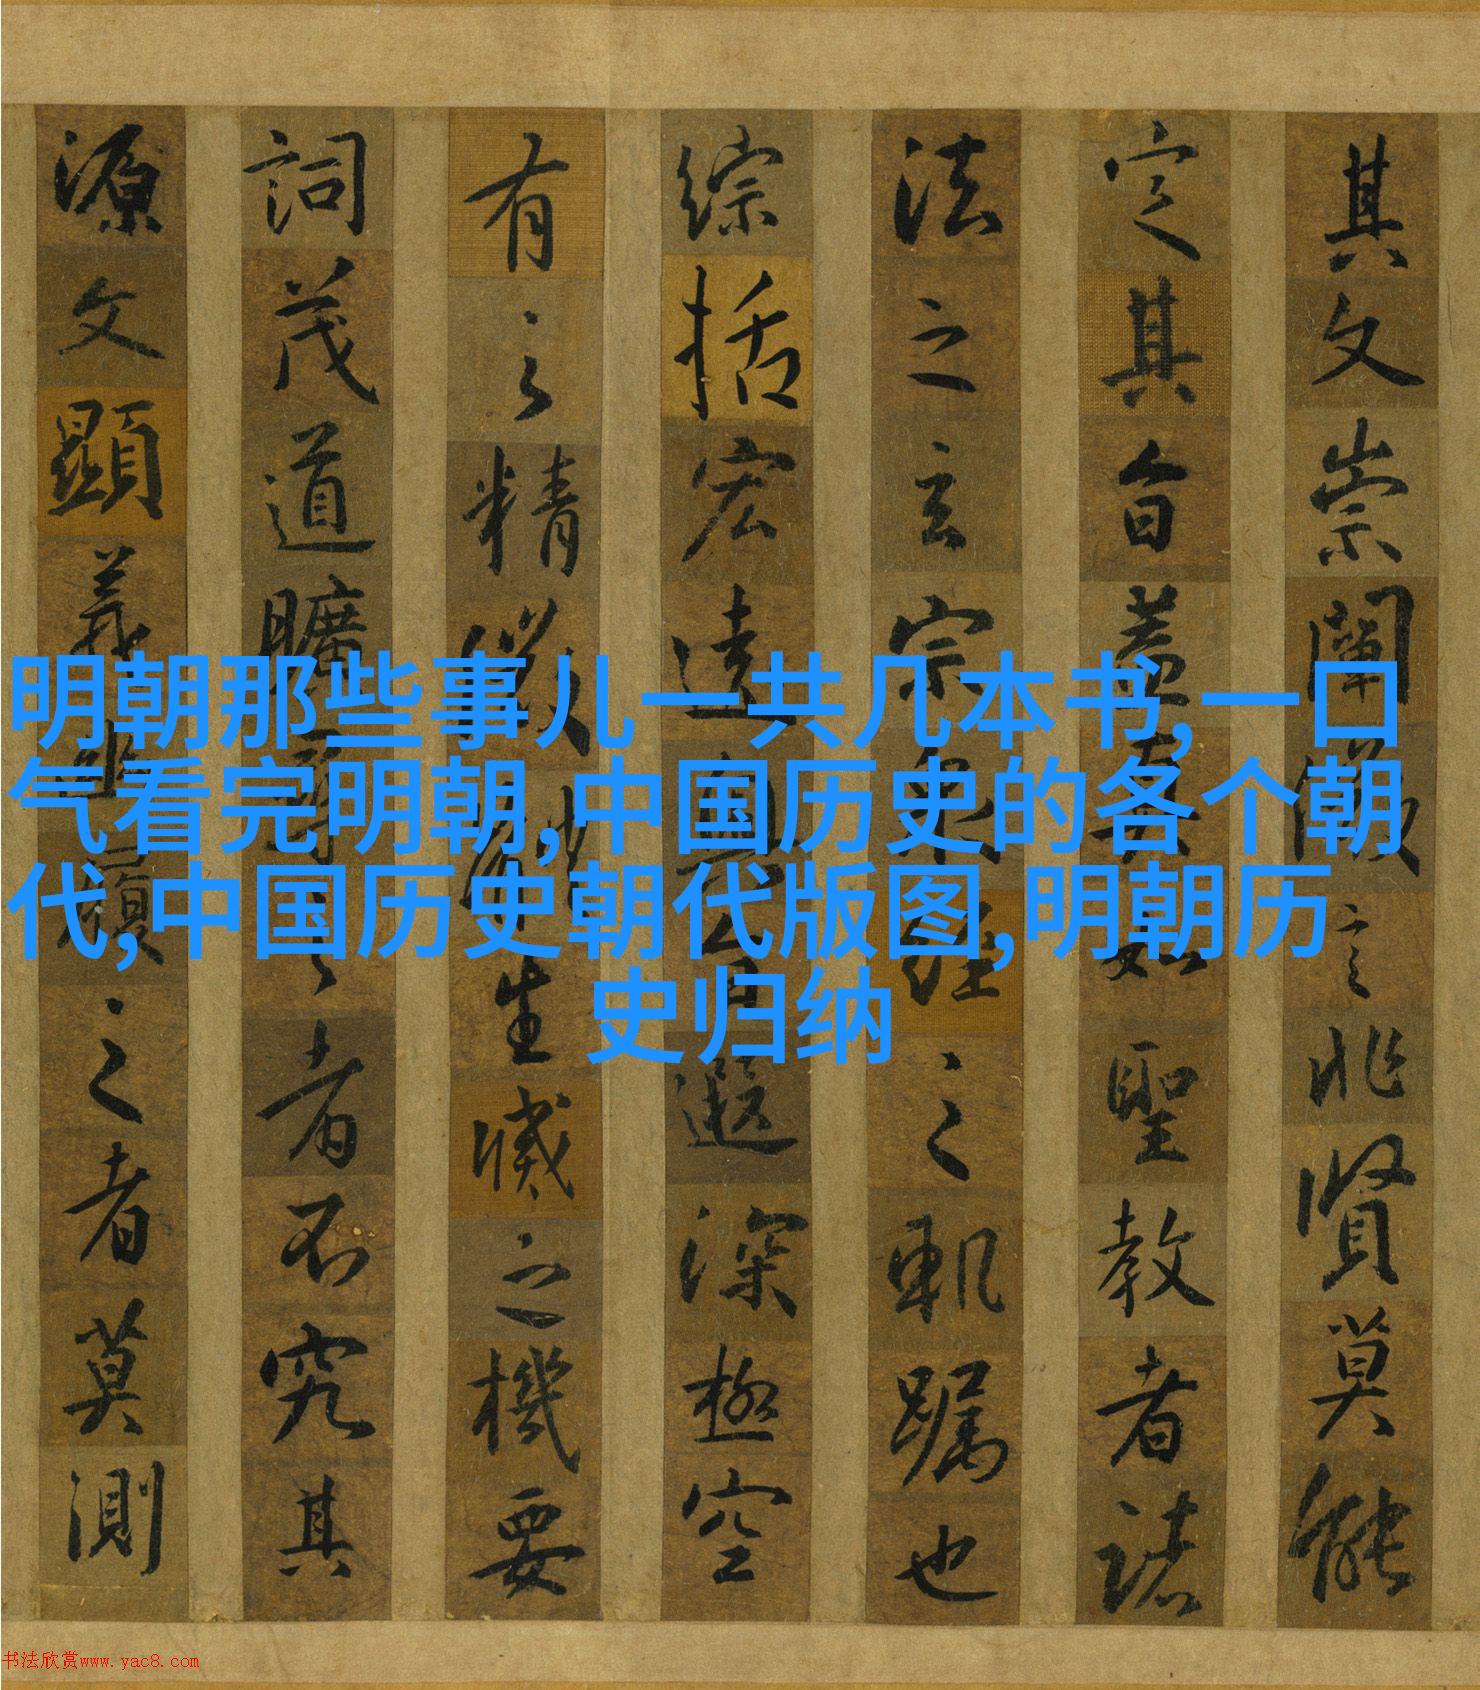 明朝那些事儿一共几本书,一口
气看完明朝,中国历史的各个朝
代,中国历史朝代版图,明朝历
史归纳
其文崇闡微言非賢莫能
定其旨蓋真如聖教者諸
法之玄宗眾經之軌躅也
綜括宏遠奧旨遐深極空
有之精微體生滅之機要
詞茂道曠尋之者不究其
源文顯義幽履之者莫測
书法欣赏www.yac8.com